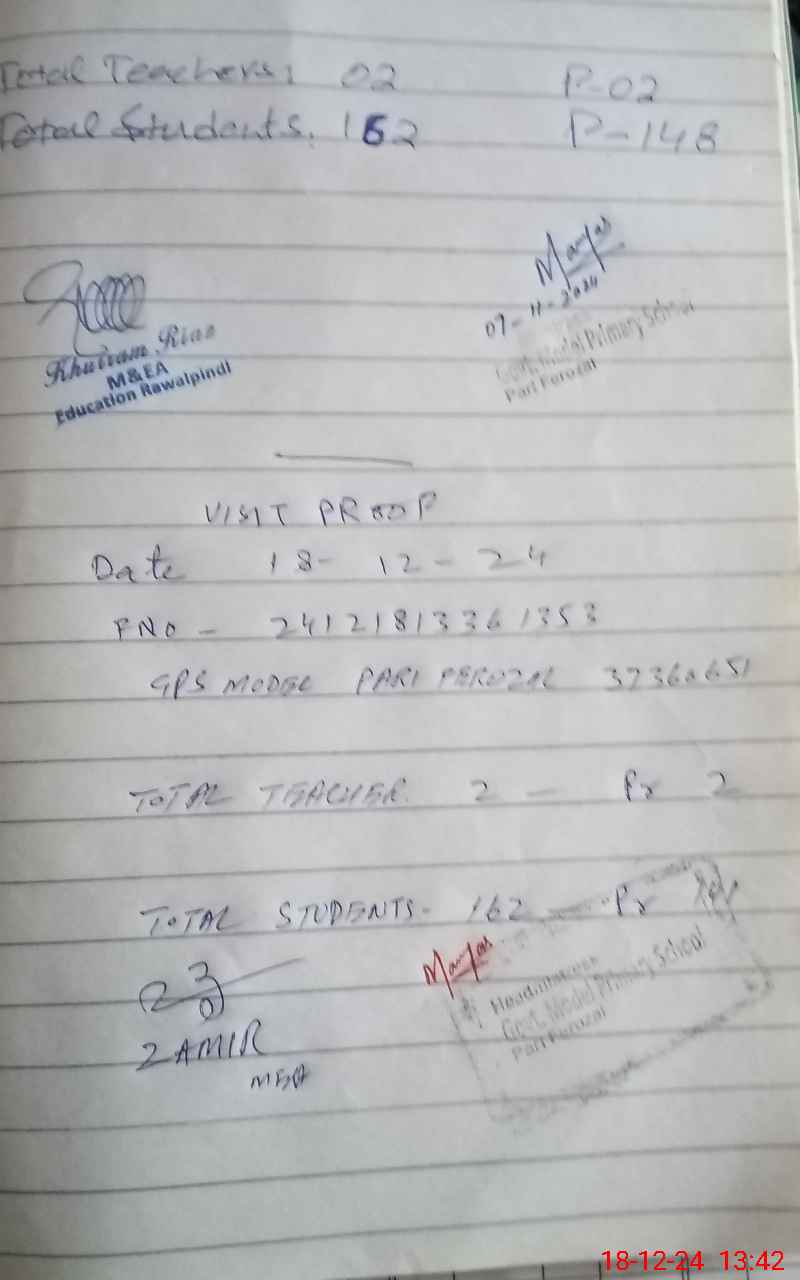 Total Teachers: 02 P-02
Total Students. 162 P-148
07-11-2024
Khurram Riaz
M&EA
Education Rawalpindi
Govt. Model Primary School
Pari Ferozal
VISIT PROOF
Date 18-12-24
FNO - 24121813361353
GPS MODEL PARI FEROZAL
TOTAL TEACHER. 2 - Pr 2
TOTAL STUDENTS. 162 - Pr
ZAMIR
MEA
Govt. Model Primary School
Pari Ferozal
18-12-24 13:42